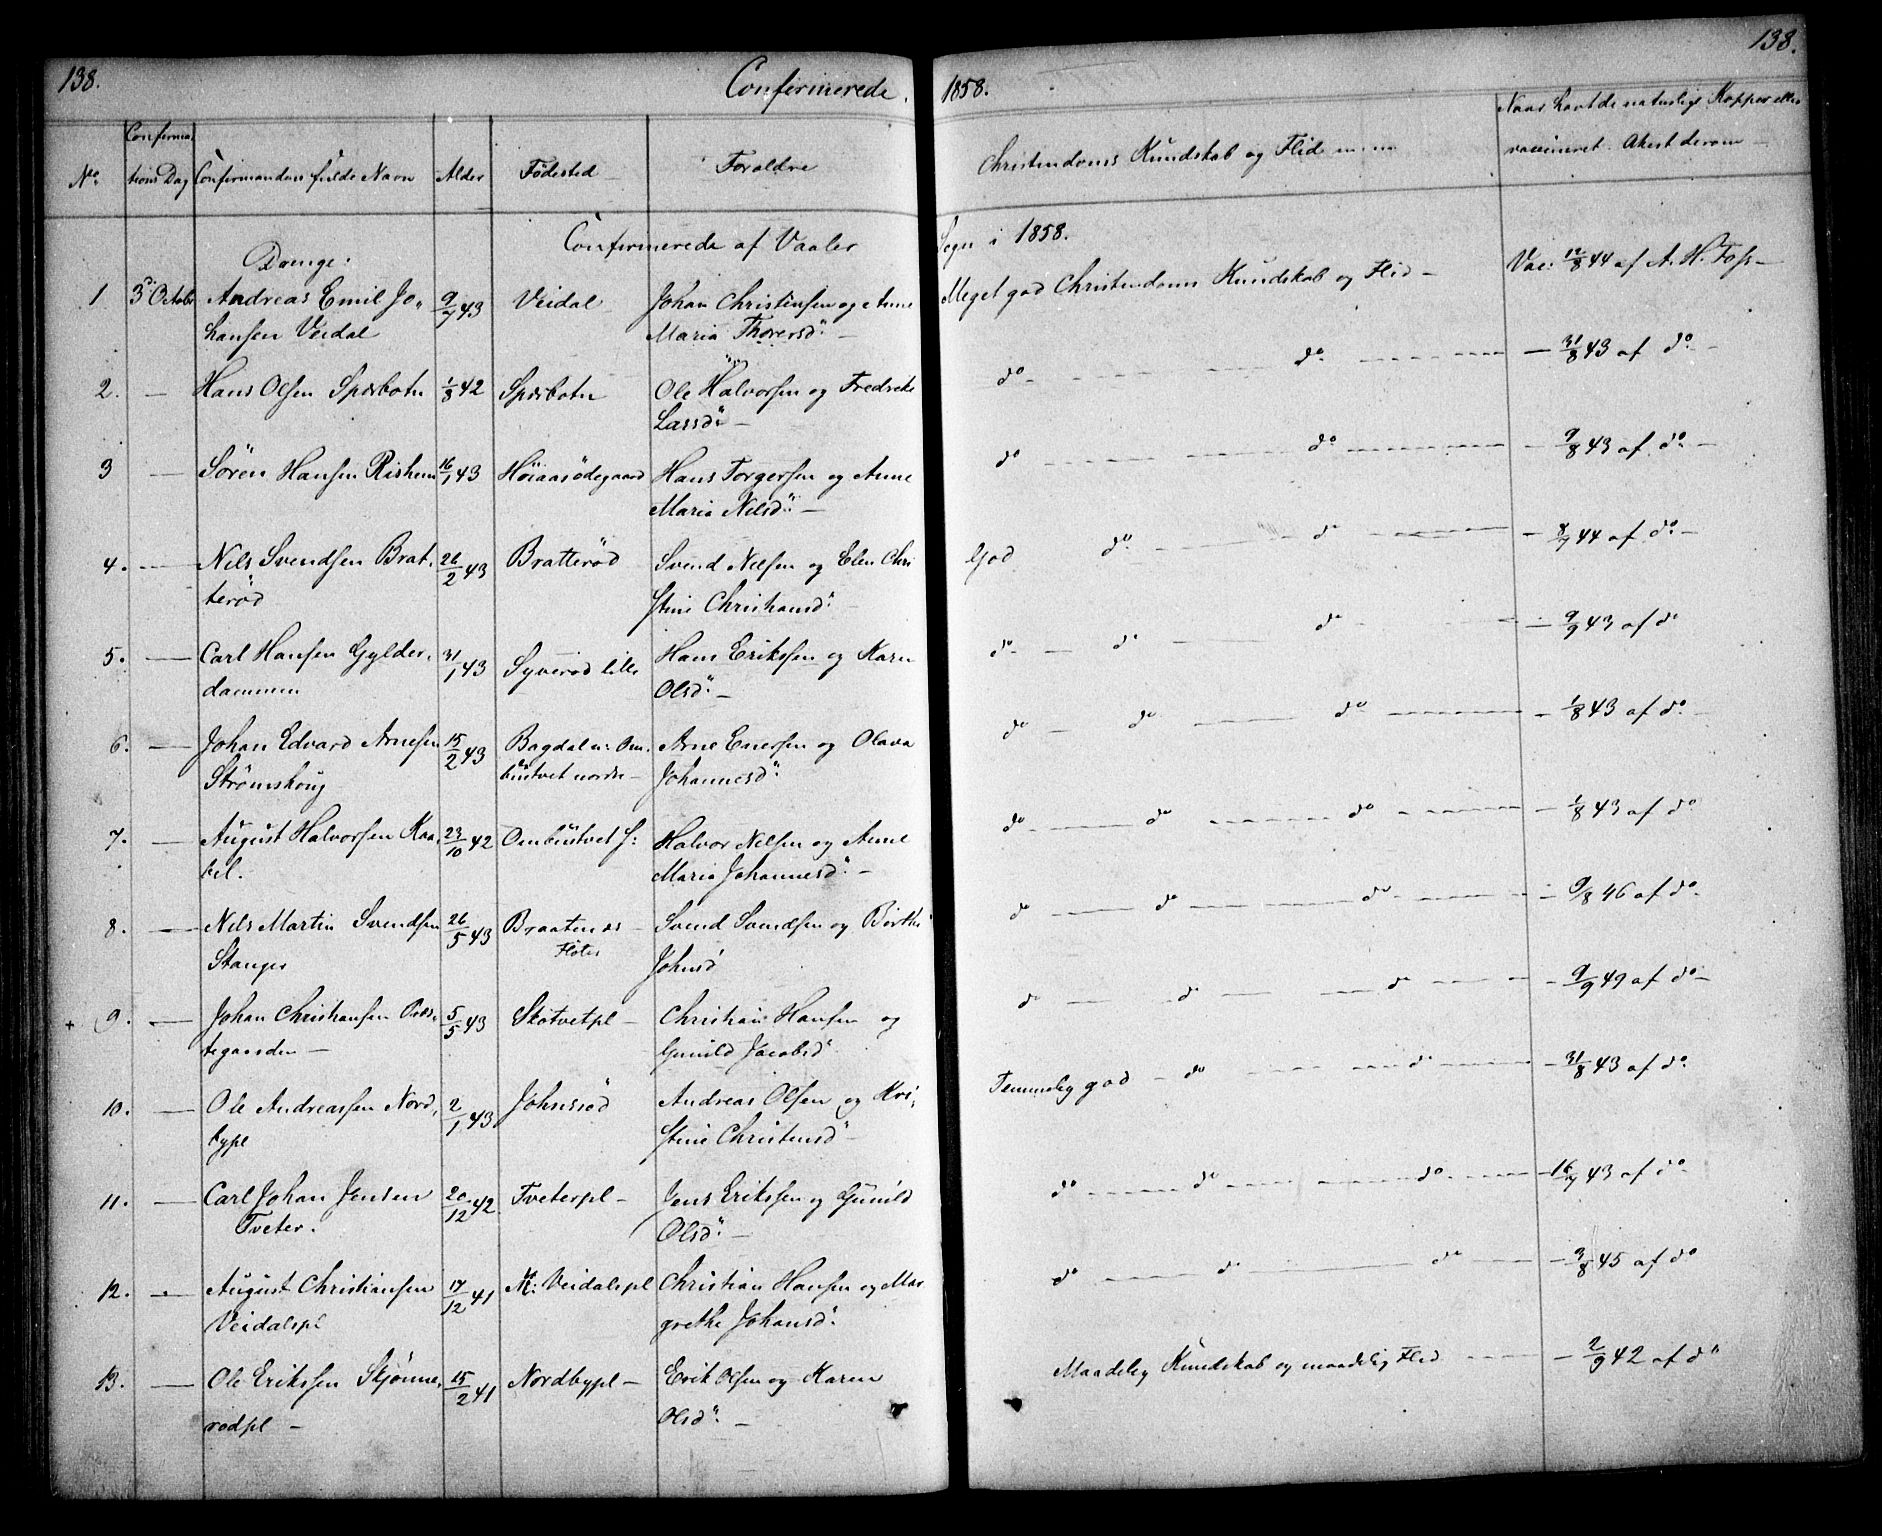 138.
Confirmerede.
1858.
138.
No.
Confirma-
tions Dag
Confirmandens fulde Navn
Alder
Födested
Foræld­re
Christendoms Kundskab og Flid
Naar havt de naturlige Kopper eller
vaccineret. Atest derom
Confirmerede af Vaaler
Sogn i 1858.
Drenge:
1 3d Octobr Andreas Emil Jo- 9/7 43 Veidal Johan Christensen og Anne Meget god Christendoms Kundskab og Flid — Vac: 12/8 44 af A. H. Foss —
hansen Veidal Maria Thoresd: —
2. — Hans Olsen Spærbotn 1/8 42 Spærbotn Ole Halvorsen og Fredrike do — do — 31/8 43 af do —
Larsd: —
3 — Sören Hansen Rishem 16/1 43 Höiaasödegaard Hans Torgersen og Anne do — do — 9/8 43 af do —
Maria Nilsd: —
4. — Nils Svendsen Brat- 26/2 43 Bratterød Svend Nilsen og Elen Chri God do — do — 8/7 44 af do —
terød stine Christiansd:
5. — Carl Hansen Gylder- 31/1 43 Syverød lille Hans Eriksen og Karen do — do — do — 9/9 43 af do
dammen Olsd: —
6. — Johan Edvard Arnesen 15/2 43 Bagdal n: Om- Arne Enersen og Olava do — do — do — 1/8 43 af do —
Strømshoug bustvet nordre — Johannesd:
7. — August Halvorsen Kaa- 23/10 42 Ombustvet s: Halvor Nilsen og Anne do — do — do — 1/8 43 af do
bel. Maria Johannesd: —
8. — Nils Martin Svendsen 26/5 43 Braaten Svend Svendsen og Birthe do — do — do — 9/8 46 af do
Stanger Fløter Johnsd
+ 9. — Johan Christiansen Præs- 5/5 43 Skotvetpl — Christian Hansen og do — do — do — 9/9 49 af do —
tegaarden — Gunild Jacobsd
10. — Ole Andreassen Nord- 2/1 43 Johnsrød Andreas Olsen og Kri- Temmelig god — do — do — 31/8 43 af do
bypl stine Christensd —
11. — Carl Johan Jensen 20/12 42 Tveterpl — Jens Eriksen og Gunild do — do — do — 16/7 43 af do
Tveter. Olsd: —
12. — August Christiansen 17/12 41 N: Veidalspl Christian Hansen og Mar do — do — do — 3/8 45 af do
Veidalspl grethe Johansd:
13. — Ole Eriksen Skjönne- 15/2 41 Nordbypl — Erik Olsen og Karen Maadelig Kundskab og maadelig Flid — 2/9 42 af do
rødpl — Olsd: —